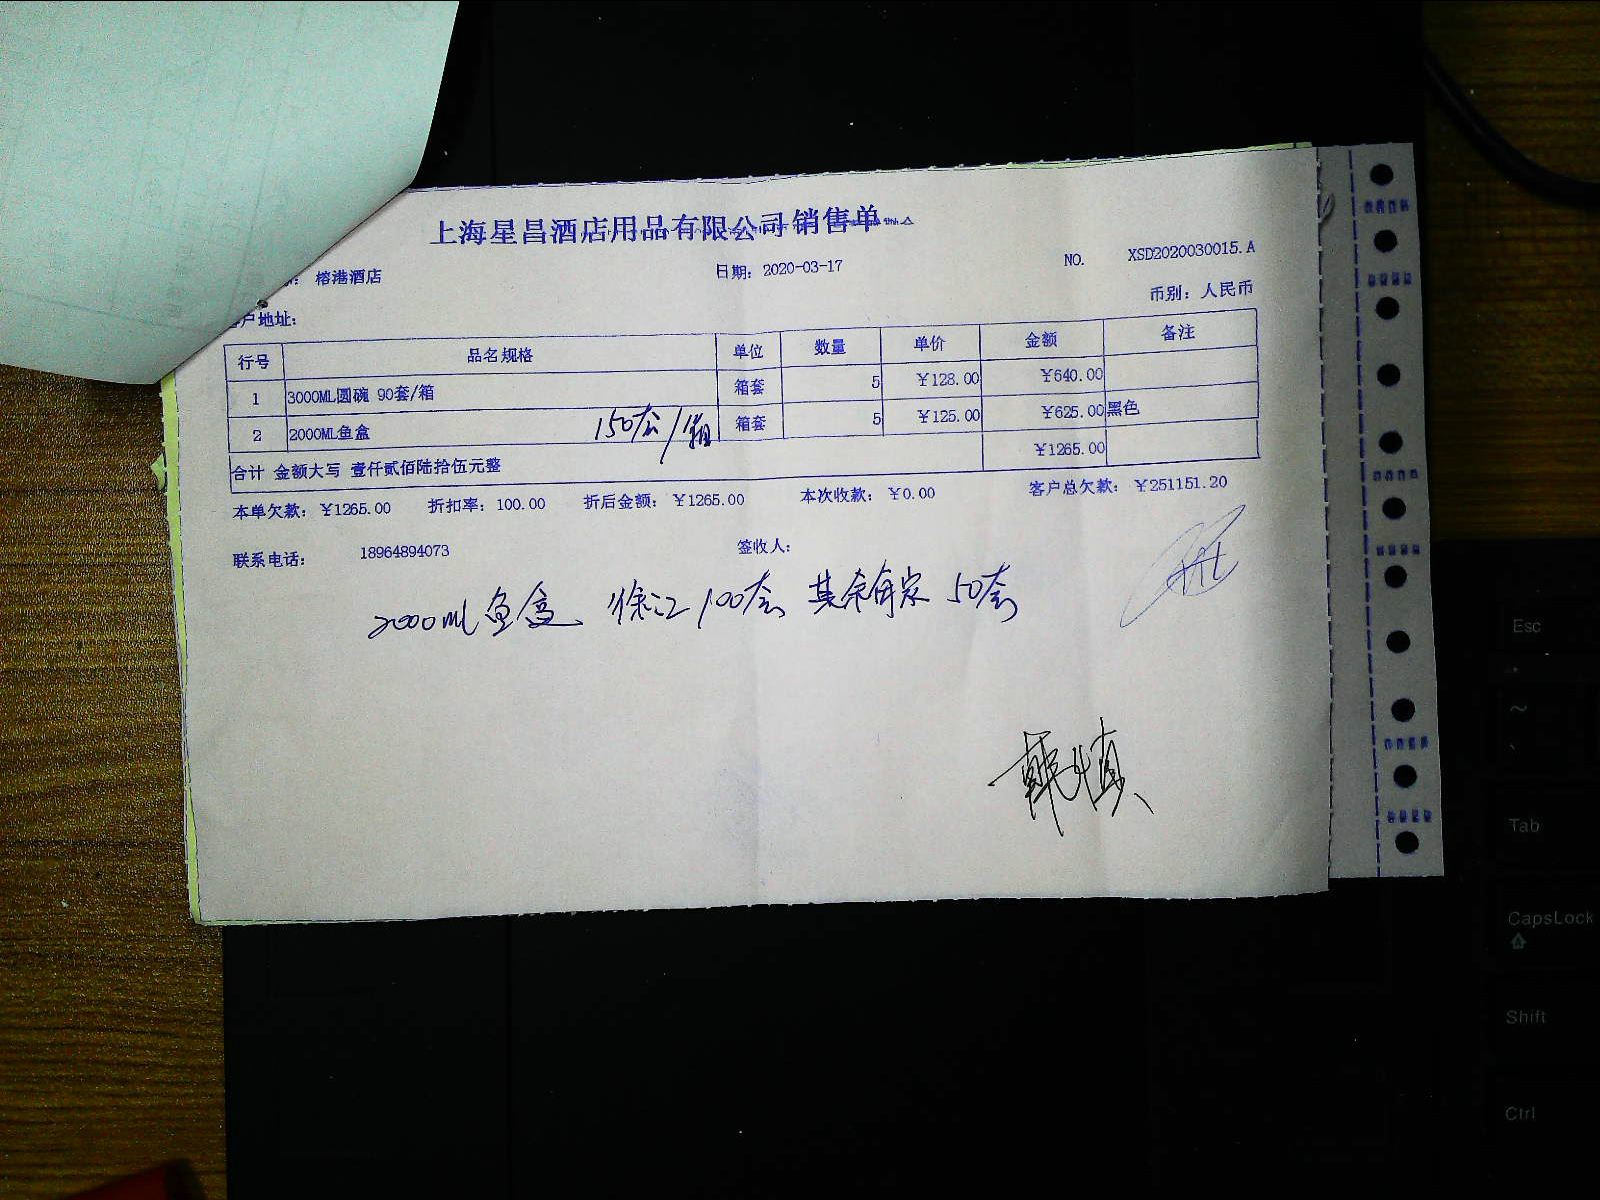 上海星昌酒店用品有限公司销售单
榕港酒店 日期：2020-03-17 NO. XSD2020030015.A
户地址： 币别：人民币
行号 品名规格 单位 数量 单价 金额 备注
1 3000ML圆碗 90套/箱 箱套 5 ￥128.00 ￥640.00
2 2000ML鱼盒 150套/箱 箱套 5 ￥125.00 ￥625.00 黑色
合计 金额大写 壹仟贰佰陆拾伍元整 ￥1265.00
本单欠款：￥1265.00 折扣率：100.00 折后金额：￥1265.00 本次收款：￥0.00 客户总欠款：￥251151.20
联系电话： 18964894073 签收人：
2000ML鱼盒 徐汇100套 其余每家50套
Esc
~
Tab
CapsLock
Shift
Ctrl